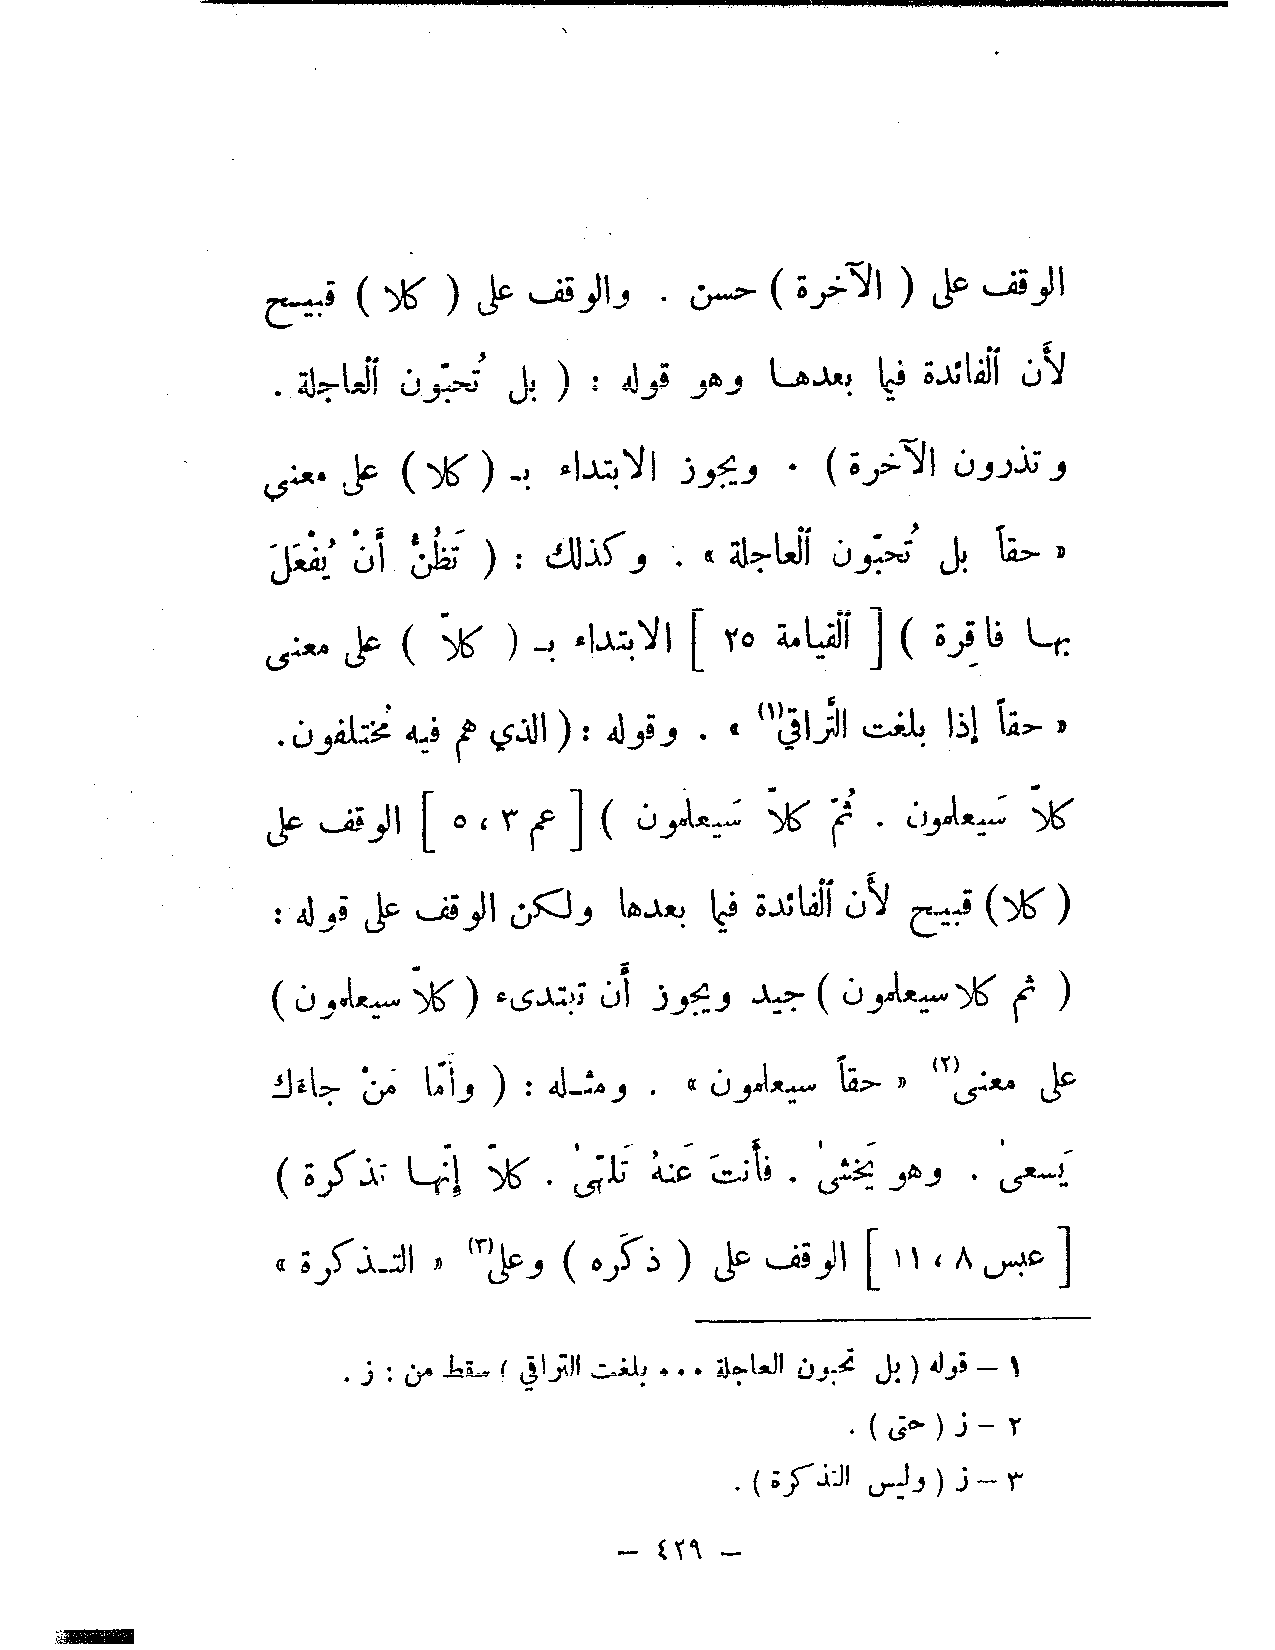 الوقف على ( الآخرة ) حسن . والوقف على ( كلا ) قبيح
لأَن ٱلفائدة فيما بعدهـا وهو قوله : ( بل تُحبّون ٱلعاجلة .
وتذرون الآخرة ) . ويجوز الابتداء بـ ( كلا ) على معنى
« حقاً بل تُحبّون ٱلعاجلة » . وكذلك : ( تَظُنُّ أَنْ يُفْعَلَ
بهـا فاقرة ) [ ٱلقيامة ٢٥ ] الابتداء بـ ( كلاّ ) على معنى
« حقاً إذا بلغت التَّراقي(١) » . وقوله : ( الذي هم فيه مُختلفون .
كلاّ سَيعلمون . ثُمّ كلاّ سَيعلمون ) [ عم ٣ ، ٥ ] الوقف على
( كلا ) قبيح لأَن ٱلفائدة فيما بعدها ولكن الوقف على قوله :
( ثم كلا سيعلمون ) جيد ويجوز أَن تبتدىء ( كلاّ سيعلمون )
على معنى(٢) « حقاً سيعلمون » . ومثـله : ( وأَمّا مَنْ جاءَك
يَسعىٰ . وهو يَخشىٰ . فأَنتَ عَنهُ تَلهّىٰ . كلاّ إِنّهـا تذكرة )
[ عبس ٨ ، ١١ ] الوقف على ( ذكَره ) وعلى(٣) « التـذكرة »
١ – قوله ( بل تحبون العاجلة ... بلغت التراقي ) سقط من : ز .
٢ – ز ( حتى ) .
٣ – ز ( وليس التذكرة ) .
– ٤٢٩ –